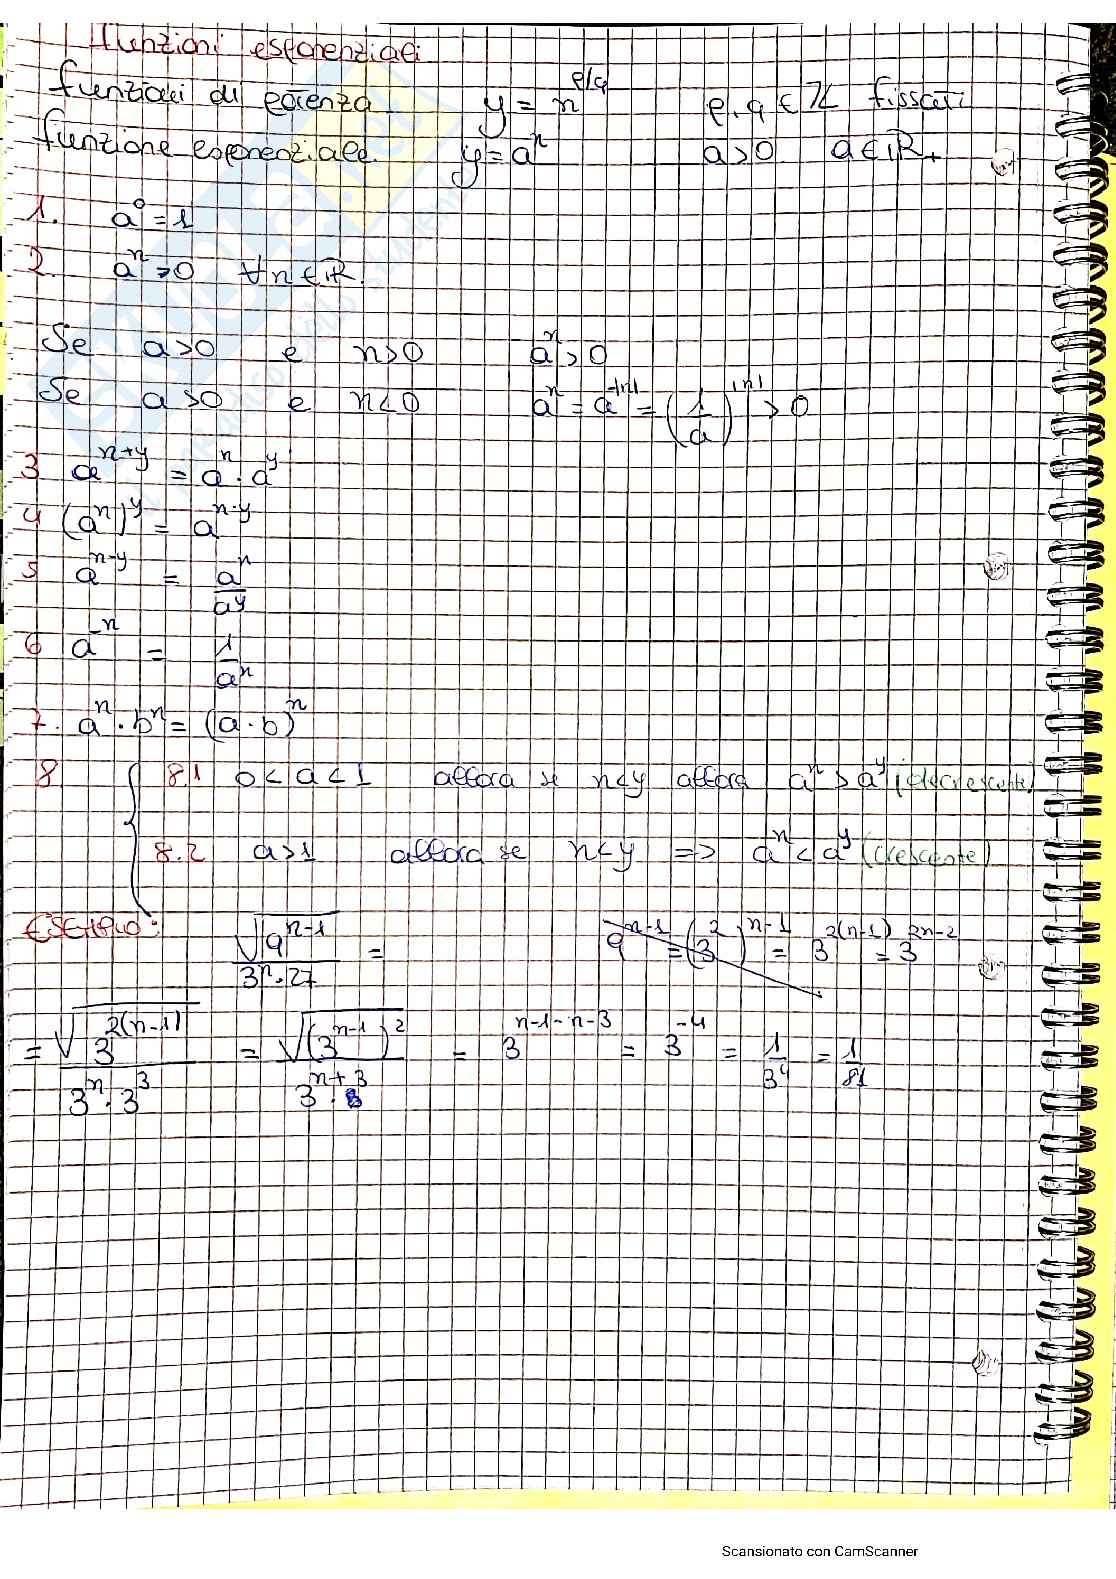 funzioni esponenziali
funzioni di potenza y = x^(p/q) p, q ∈ ℤ fissati
funzione esponenziale. y = a^x a > 0 a ∈ ℝ+
1. a^0 = 1
2. a^x > 0 ∀x ∈ ℝ.
Se a > 0 e x > 0 a^x > 0
Se a > 0 e x < 0 a^x = a^(-|x|) = (1/a)^|x| > 0
3 a^(x+y) = a^x · a^y
4 (a^x)^y = a^(x·y)
5 a^(x-y) = a^x / a^y
6 a^(-x) = 1 / a^x
7. a^x · b^x = (a · b)^x
8 8.1 0 < a < 1 allora se x < y allora a^x > a^y (decrescente)
8.2 a > 1 allora se x < y => a^x < a^y (crescente)
ESEMPIO: √(9^(x-1)) / (3^x · 27) = 9^(x-1) = (3^2)^(x-1) = 3^(2(x-1)) = 3^(2x-2)
= √(3^(2(x-1))) / (3^x · 3^3) = √((3^(x-1))^2) / 3^(x+3) = 3^(x-1-x-3) = 3^(-4) = 1/3^4 = 1/81
Scansionato con CamScanner